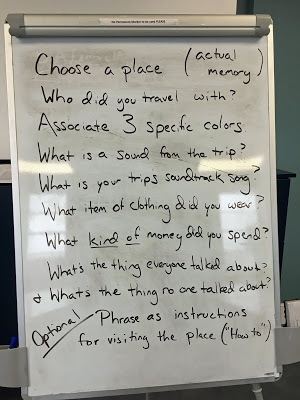 No Permanent Marker to be used PLEASE
Choose a place (actual memory)
Who did you travel with?
Associate 3 specific colors
What is a sound from the trip?
What is your trips soundtrack song?
What item of clothing did you wear?
What kind of money did you spend?
What's the thing everyone talked about?
& What's the thing no one talked about?
Optional Phrase as instructions
for visiting the place ("How to")